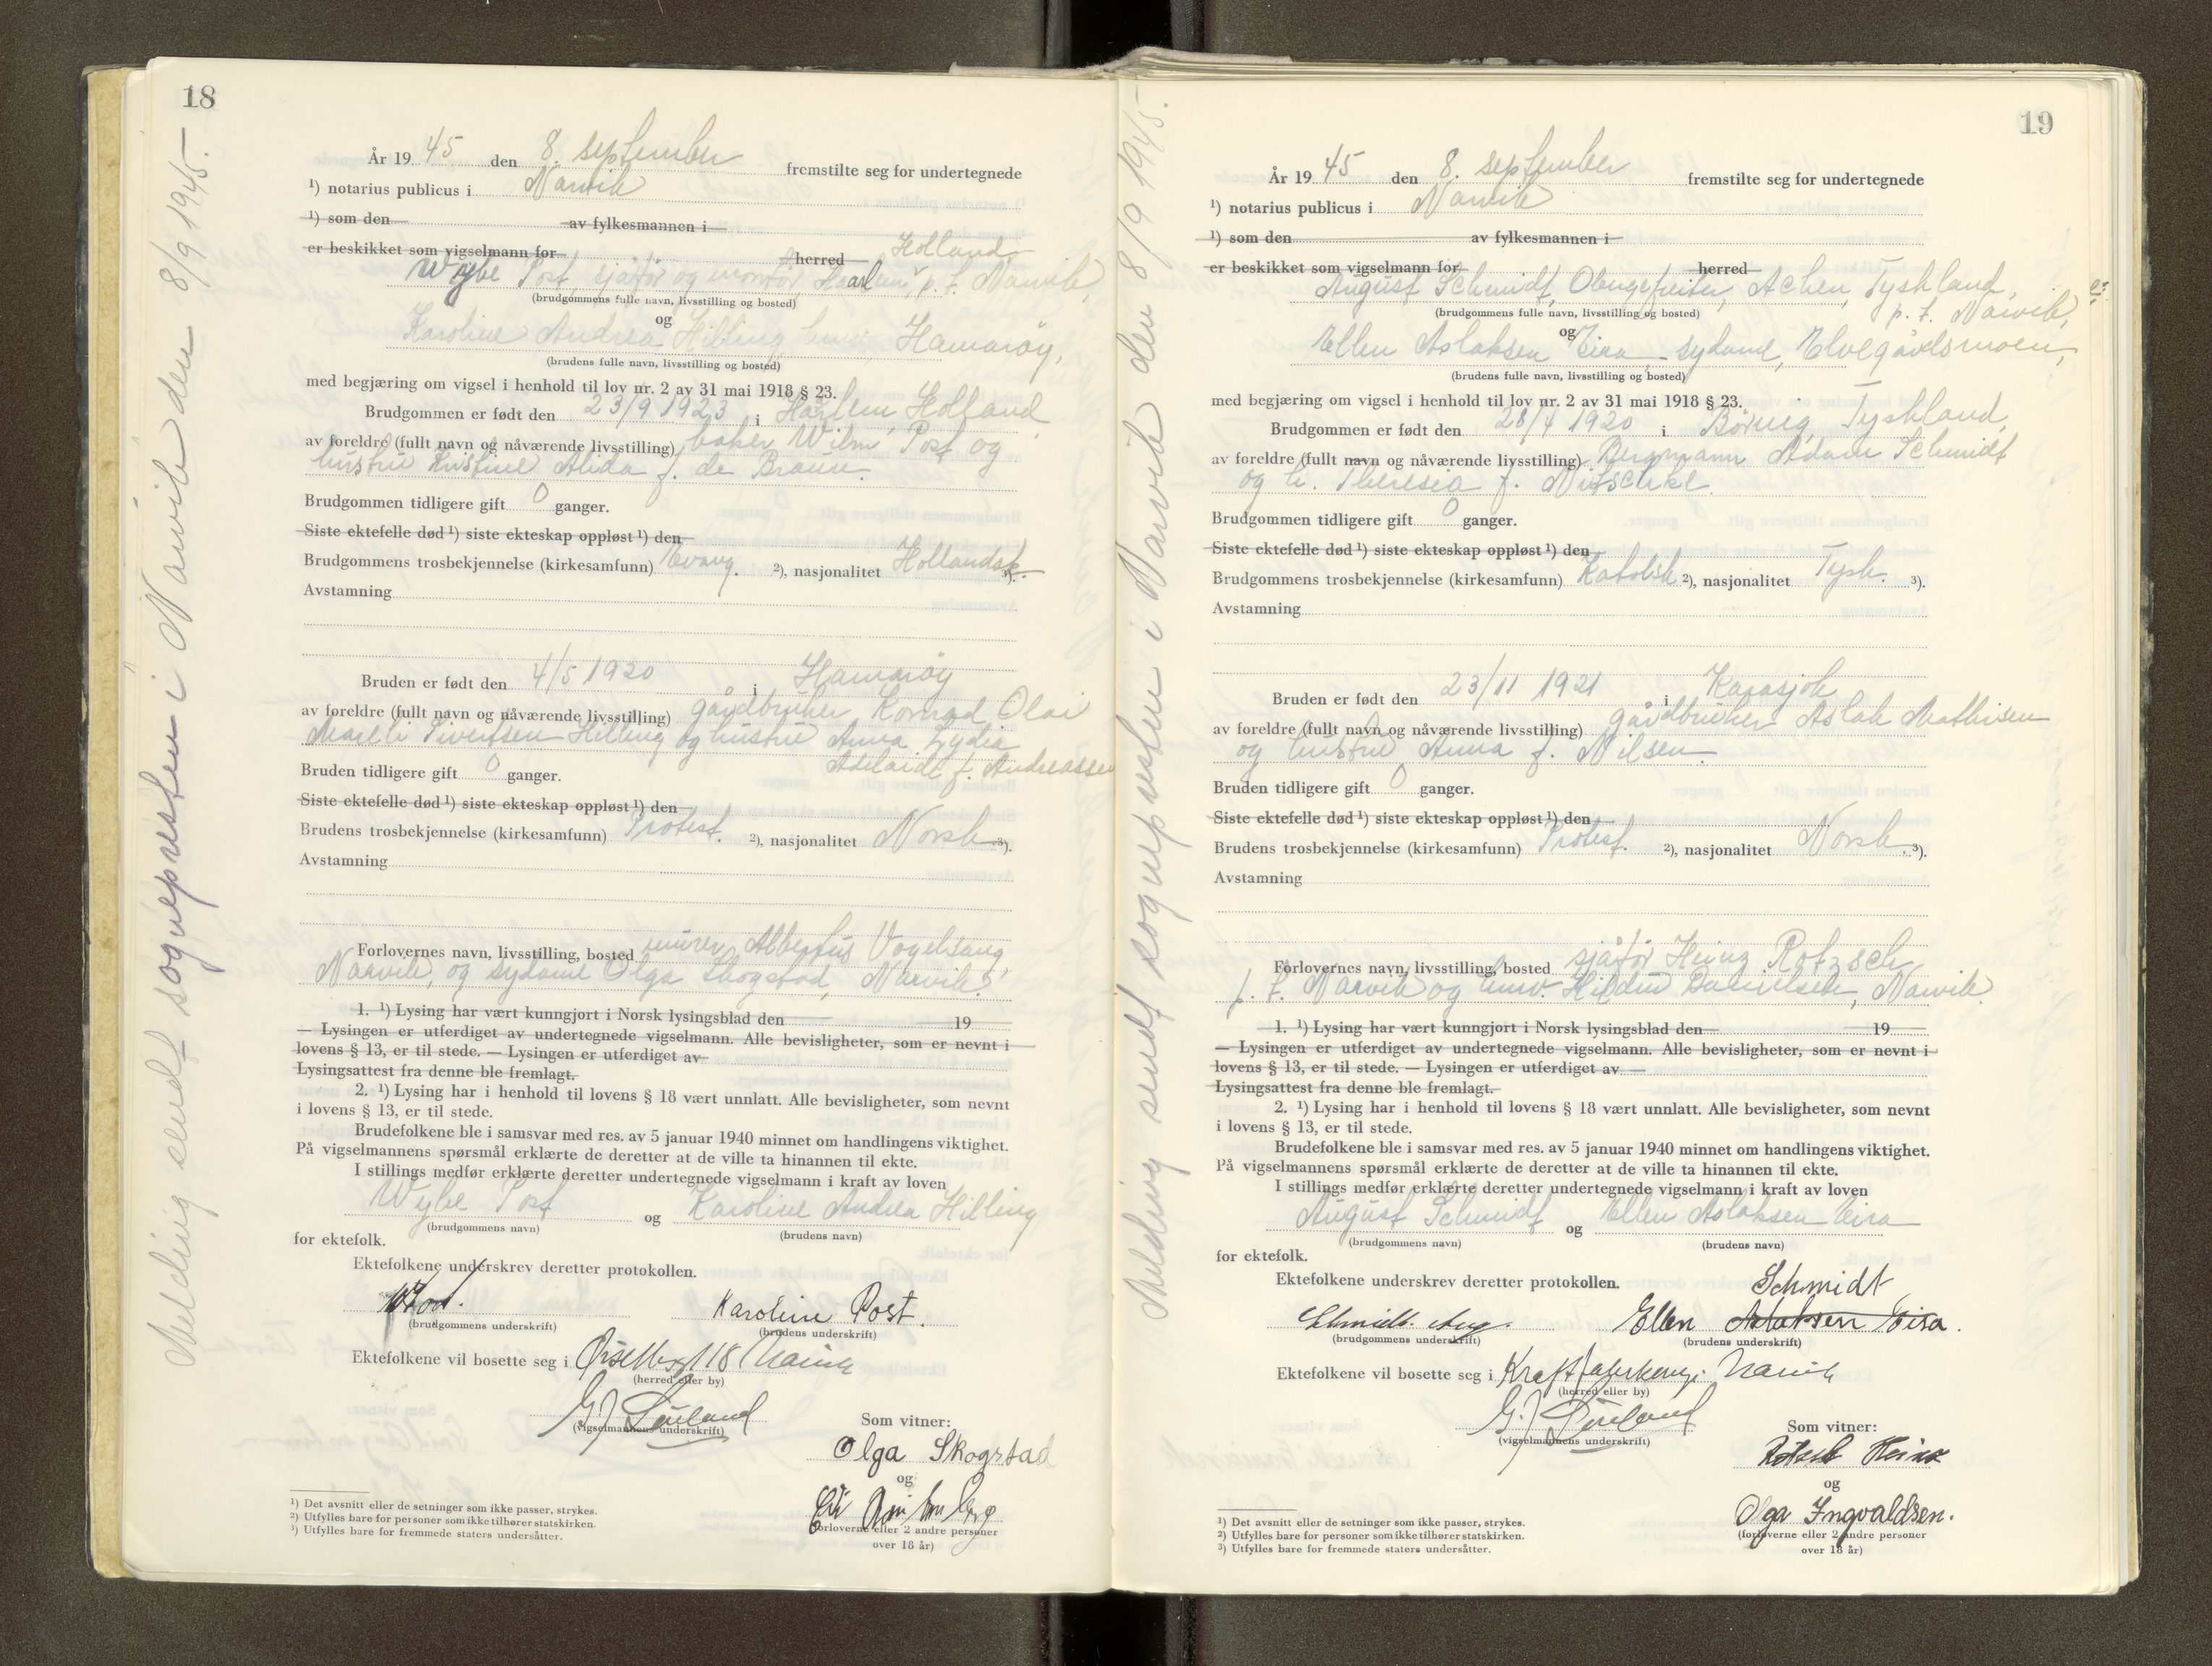 18
Melding sendt sognepresten i Narvik den 8/9 1945.-
År 19 45 den 8. september fremstilte seg for undertegnede
¹) notarius publicus i Narvik
¹) som den av fylkesmannen i
er beskikket som vigselmann for herred Holland
Wybe Post, sjåfør og montør, Haarlem, p.t. Narvik,
(brudgommens fulle navn, livsstilling og bosted)
og
Karoline Andrea Hilling, Hamarøy,
(brudens fulle navn, livsstilling og bosted)
med begjæring om vigsel i henhold til lov nr. 2 av 31 mai 1918 § 23.
Brudgommen er født den 23/9 1923 i Haarlem, Holland,
av foreldre (fullt navn og nåværende livsstilling) baker Wilm Post og
hustru Kristine Alida f. de Braun.
Brudgommen tidligere gift 0 ganger.
Siste ektefelle død ¹) siste ekteskap oppløst ¹) den
Brudgommens trosbekjennelse (kirkesamfunn) Evang. ²), nasjonalitet Hollandsk ³).
Avstamning
Bruden er født den 4/5 1920 i Hamarøy
av foreldre (fullt navn og nåværende livsstilling) gårdbruker Konrad Olai
Mareli Sivertsen Hilling og hustru Anna Lydia
Adelaide f. Andreassen
Bruden tidligere gift 0 ganger.
Siste ektefelle død ¹) siste ekteskap oppløst ¹) den
Brudens trosbekjennelse (kirkesamfunn) Protest. ²), nasjonalitet Norsk ³).
Avstamning
Forlovernes navn, livsstilling, bosted murer Albertus Vogelsang,
Narvik, og sydame Olga Skogstad, Narvik.
1. ¹) Lysing har vært kunngjort i Norsk lysingsblad den 19
— Lysingen er utferdiget av undertegnede vigselmann. Alle bevisligheter, som er nevnt i
lovens § 13, er til stede. — Lysingen er utferdiget av
Lysingsattest fra denne ble fremlagt.
2. ¹) Lysing har i henhold til lovens § 18 vært unnlatt. Alle bevisligheter, som nevnt
i lovens § 13, er til stede.
Brudefolkene ble i samsvar med res. av 5 januar 1940 minnet om handlingens viktighet.
På vigselmannens spørsmål erklærte de deretter at de ville ta hinannen til ekte.
I stillings medfør erklærte deretter undertegnede vigselmann i kraft av loven
Wybe Post og Karoline Andrea Hilling
(brudgommens navn) (brudens navn)
for ektefolk.
Ektefolkene underskrev deretter protokollen.
Karoline Post.
(brudgommens underskrift) (brudens underskrift)
Ektefolkene vil bosette seg i 118 Narvik
(herred eller by)
(vigselmannens underskrift)
Som vitner:
Olga Skogstad
og
(forloverne eller 2 andre personer
over 18 år)
¹) Det avsnitt eller de setninger som ikke passer, strykes.
²) Utfylles bare for personer som ikke tilhører statskirken.
³) Utfylles bare for fremmede staters undersåtter.
19
Melding sendt sognepresten i Narvik den 8/9 1945.-
År 19 45 den 8. september fremstilte seg for undertegnede
¹) notarius publicus i Narvik
¹) som den av fylkesmannen i
er beskikket som vigselmann for herred
August Schmidt, Obergefreiter, Achen, Tyskland,
(brudgommens fulle navn, livsstilling og bosted) p. t. Narvik,
og
Ellen Aslaksen Eira, sydame, Elvegårdsmoen,
(brudens fulle navn, livsstilling og bosted)
med begjæring om vigsel i henhold til lov nr. 2 av 31 mai 1918 § 23.
Brudgommen er født den 28/4 1920 i Tyskland,
av foreldre (fullt navn og nåværende livsstilling) Bergmann Adam Schmidt
og h. Theresia f. Nitschke.
Brudgommen tidligere gift 0 ganger.
Siste ektefelle død ¹) siste ekteskap oppløst ¹) den
Brudgommens trosbekjennelse (kirkesamfunn) Katolsk ²), nasjonalitet Tysk. ³).
Avstamning
Bruden er født den 23/11 1921 i Karasjok
av foreldre (fullt navn og nåværende livsstilling) gårdbruker Aslak Mathisen
og hustru Anna f. Nilsen.
Bruden tidligere gift 0 ganger.
Siste ektefelle død ¹) siste ekteskap oppløst ¹) den
Brudens trosbekjennelse (kirkesamfunn) Protest. ²), nasjonalitet Norsk ³).
Avstamning
Forlovernes navn, livsstilling, bosted sjåfør Heinz Rotzsch
p. t. Narvik og Narvik.
1. ¹) Lysing har vært kunngjort i Norsk lysingsblad den 19
— Lysingen er utferdiget av undertegnede vigselmann. Alle bevisligheter, som er nevnt i
lovens § 13, er til stede. — Lysingen er utferdiget av
Lysingsattest fra denne ble fremlagt.
2. ¹) Lysing har i henhold til lovens § 18 vært unnlatt. Alle bevisligheter, som nevnt
i lovens § 13, er til stede.
Brudefolkene ble i samsvar med res. av 5 januar 1940 minnet om handlingens viktighet.
På vigselmannens spørsmål erklærte de deretter at de ville ta hinannen til ekte.
I stillings medfør erklærte deretter undertegnede vigselmann i kraft av loven
August Schmidt og Ellen Aslaksen Eira
(brudgommens navn) (brudens navn)
for ektefolk.
Ektefolkene underskrev deretter protokollen.
Schmidt
Schmidt Aug. Ellen Aslaksen Eira.
(brudgommens underskrift) (brudens underskrift)
Ektefolkene vil bosette seg i Narvik
(herred eller by)
(vigselmannens underskrift)
Som vitner:
Rotzsch Heinz
og
Olga Ingvaldsen.
(forloverne eller 2 andre personer
over 18 år)
¹) Det avsnitt eller de setninger som ikke passer, strykes.
²) Utfylles bare for personer som ikke tilhører statskirken.
³) Utfylles bare for fremmede staters undersåtter.